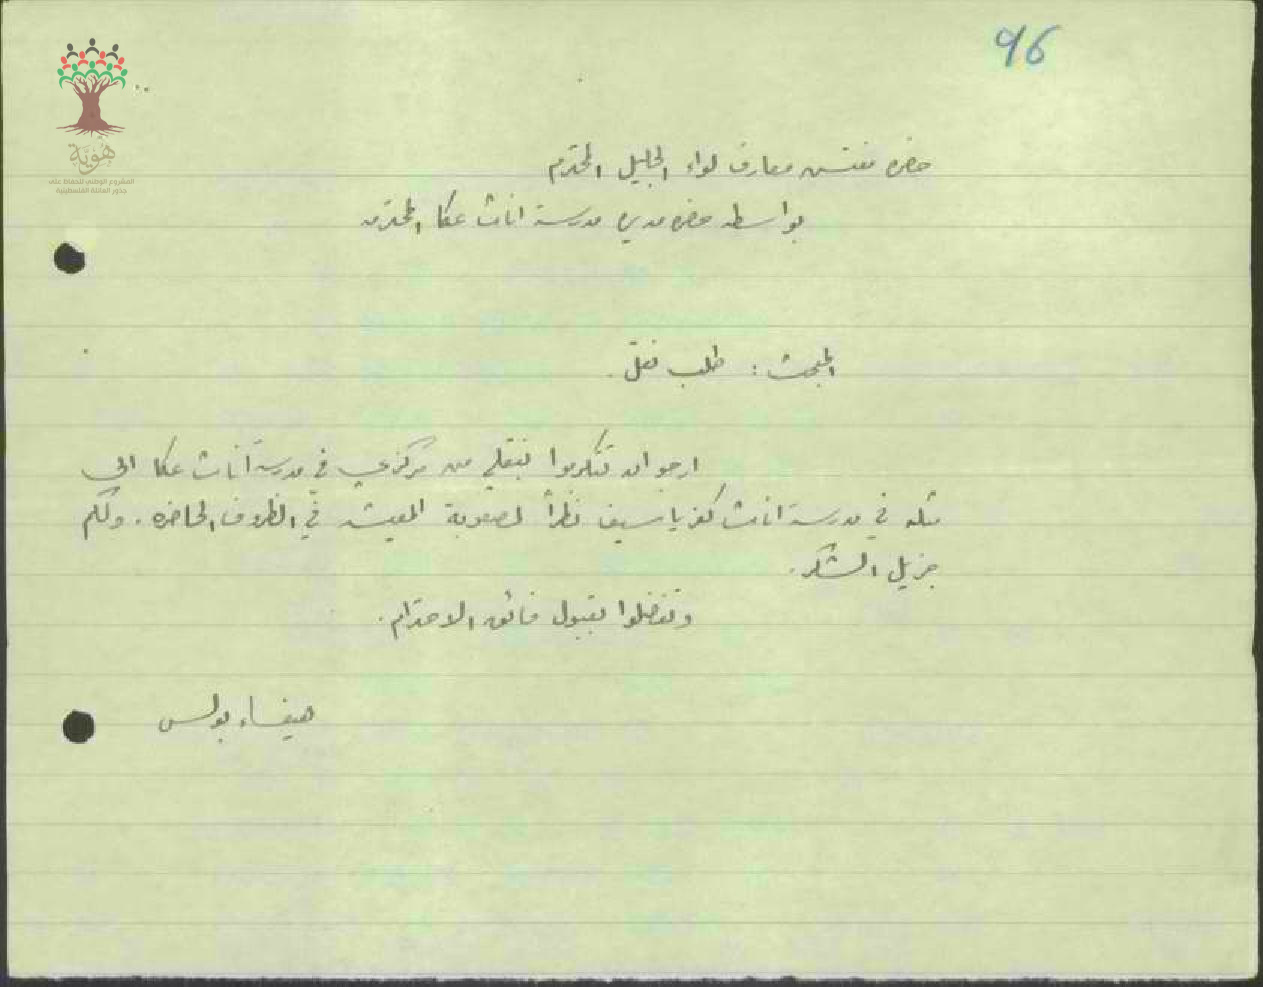 96
هُوِيَّة
المشروع الوطني للحفاظ على
جذور العائلة الفلسطينية
حضرة مفتش معارف لواء الجليل المحترم
بواسطة حضرة مديرة مدرسة اناث عكا المحترمه
المبحث : طلب نقل .
ارجو ان تتكرموا بنقلي من مركزي في مدرسة أناث عكا الى
مثله في مدرسة اناث كفر ياسيف نظراً لصعوبة المعيشة في الظروف الحاضره . ولكم
جزيل الشكر .
وتفضلوا بقبول فائق الاحترام .
هيفاء بولس